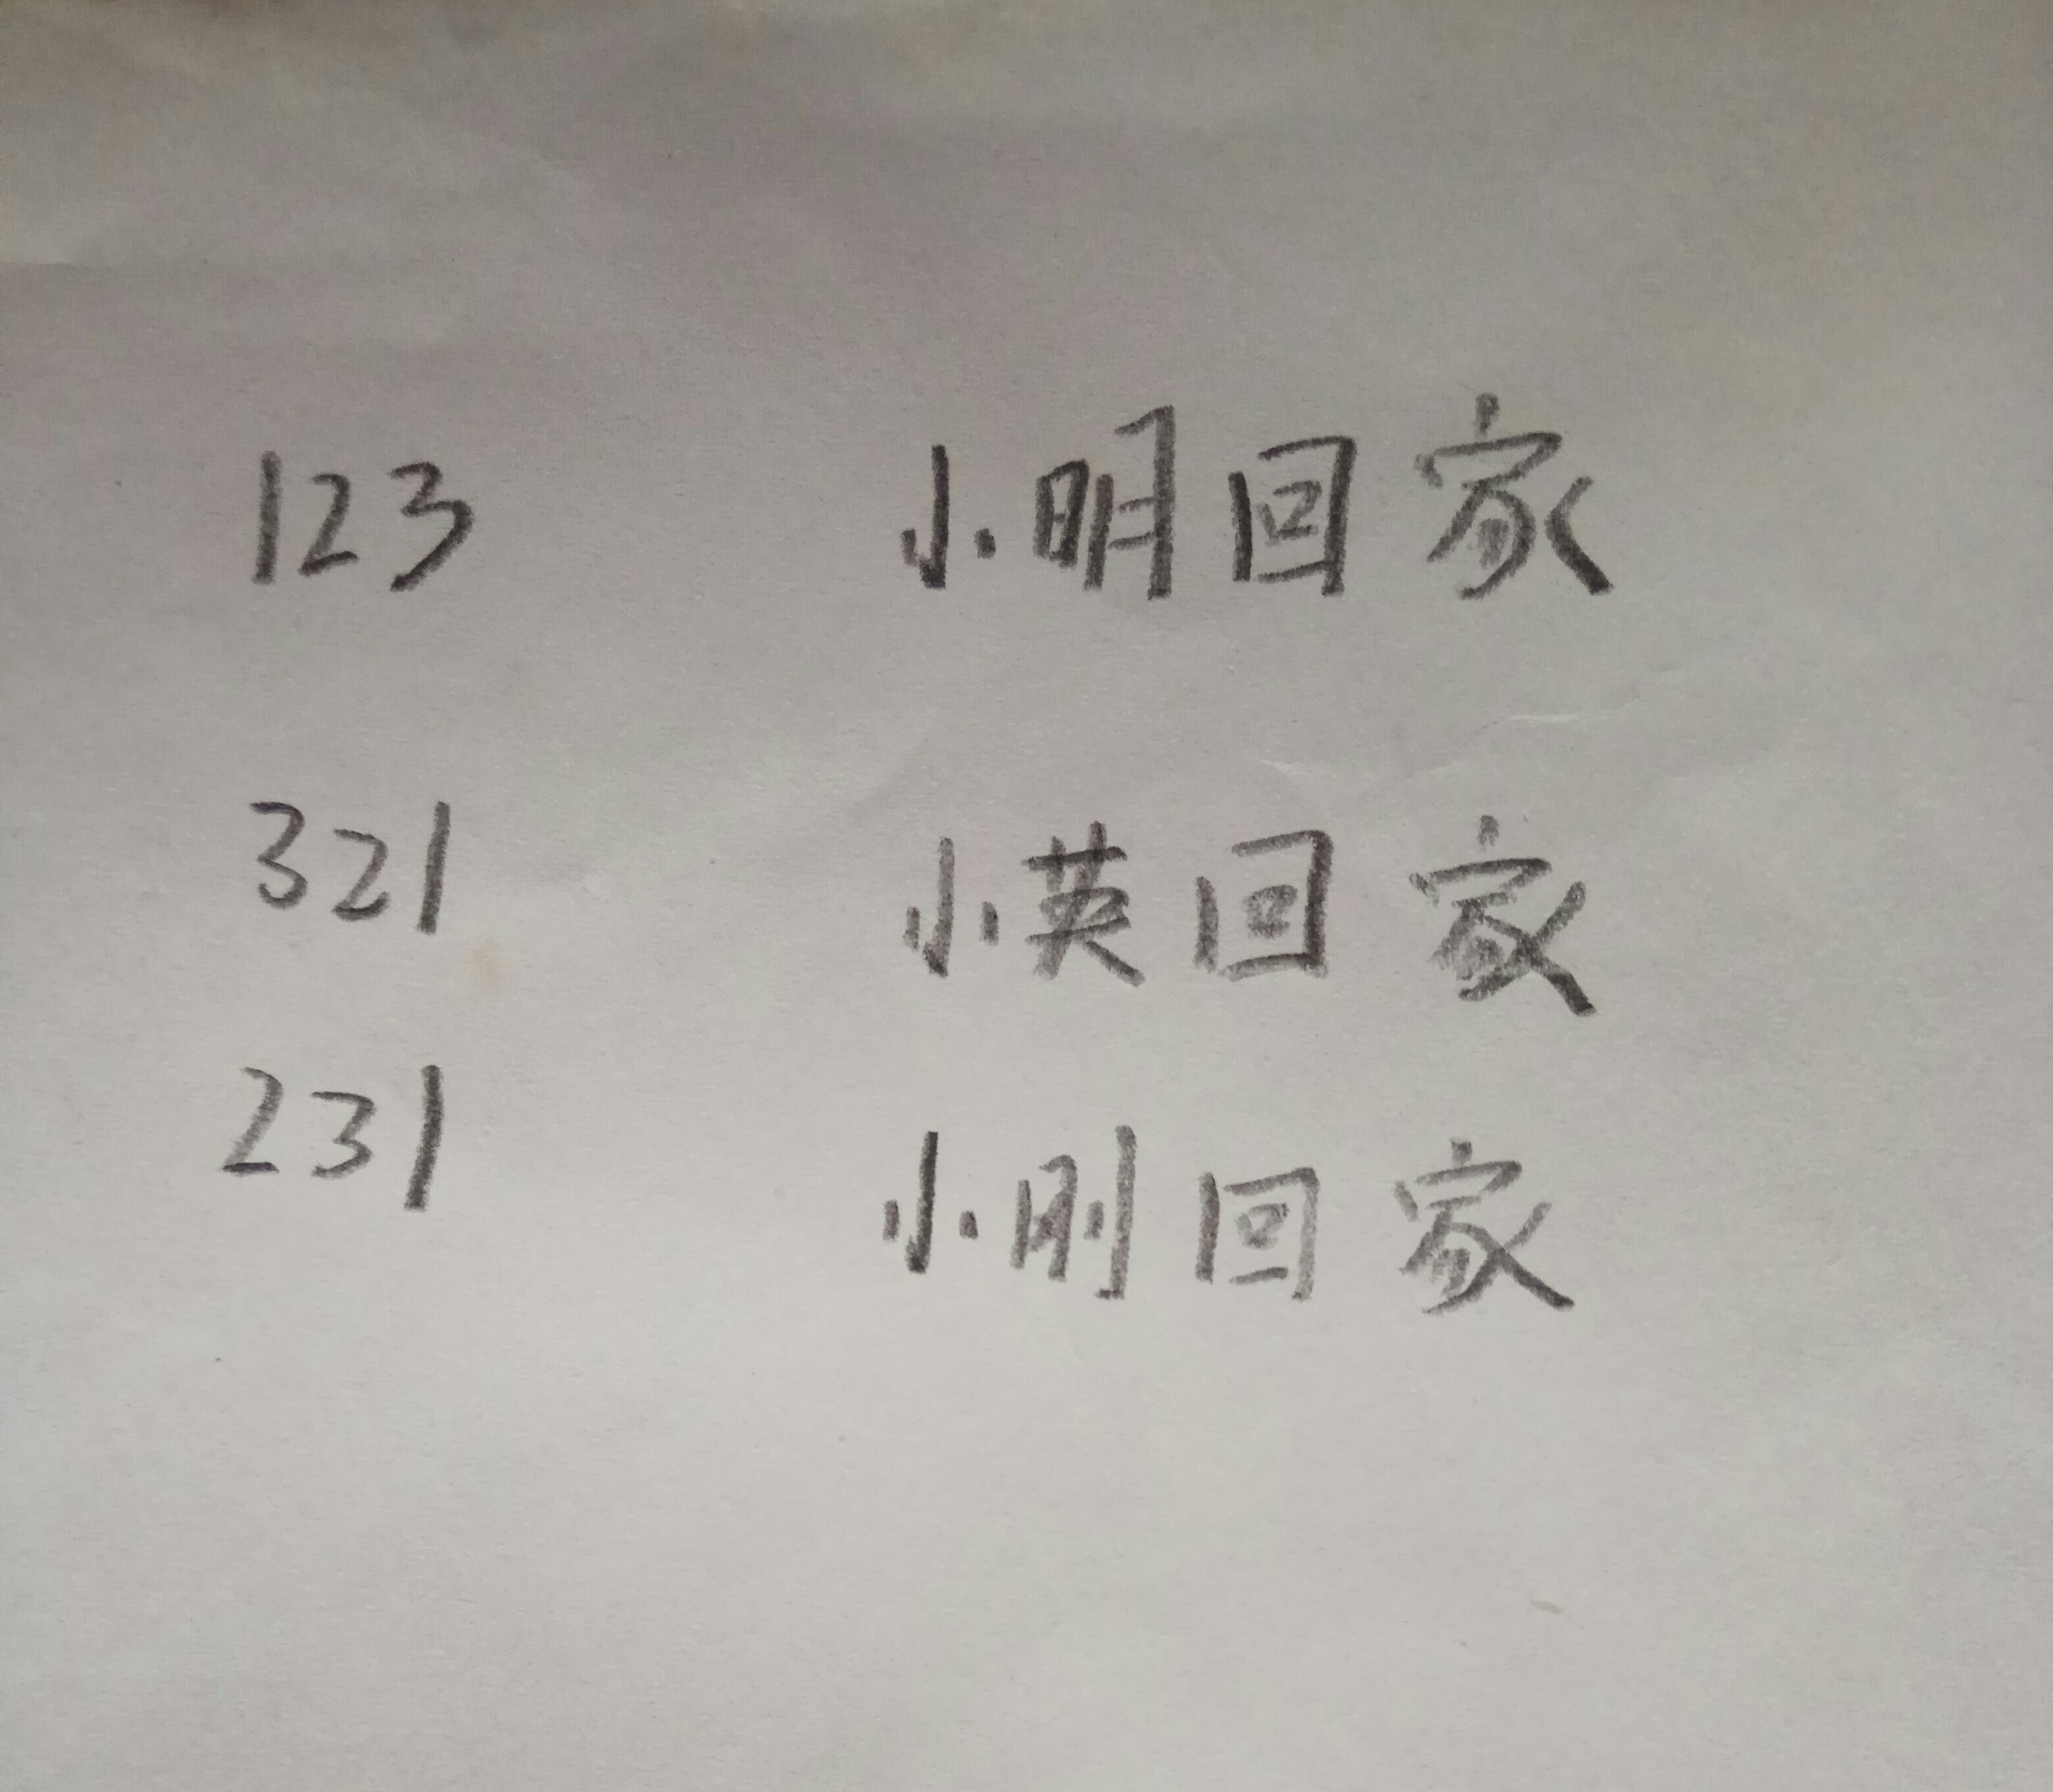 123 小明回家
321 小英回家
231 小刚回家